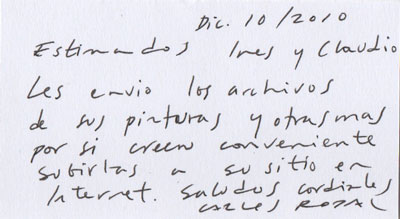 Dic. 10/2010
Estimados Ines y Claudio
Les envio los archivos
de sus pinturas y otras mas
por si creen conveniente
subirlas a su sitio en
Internet. Saludos cordiales